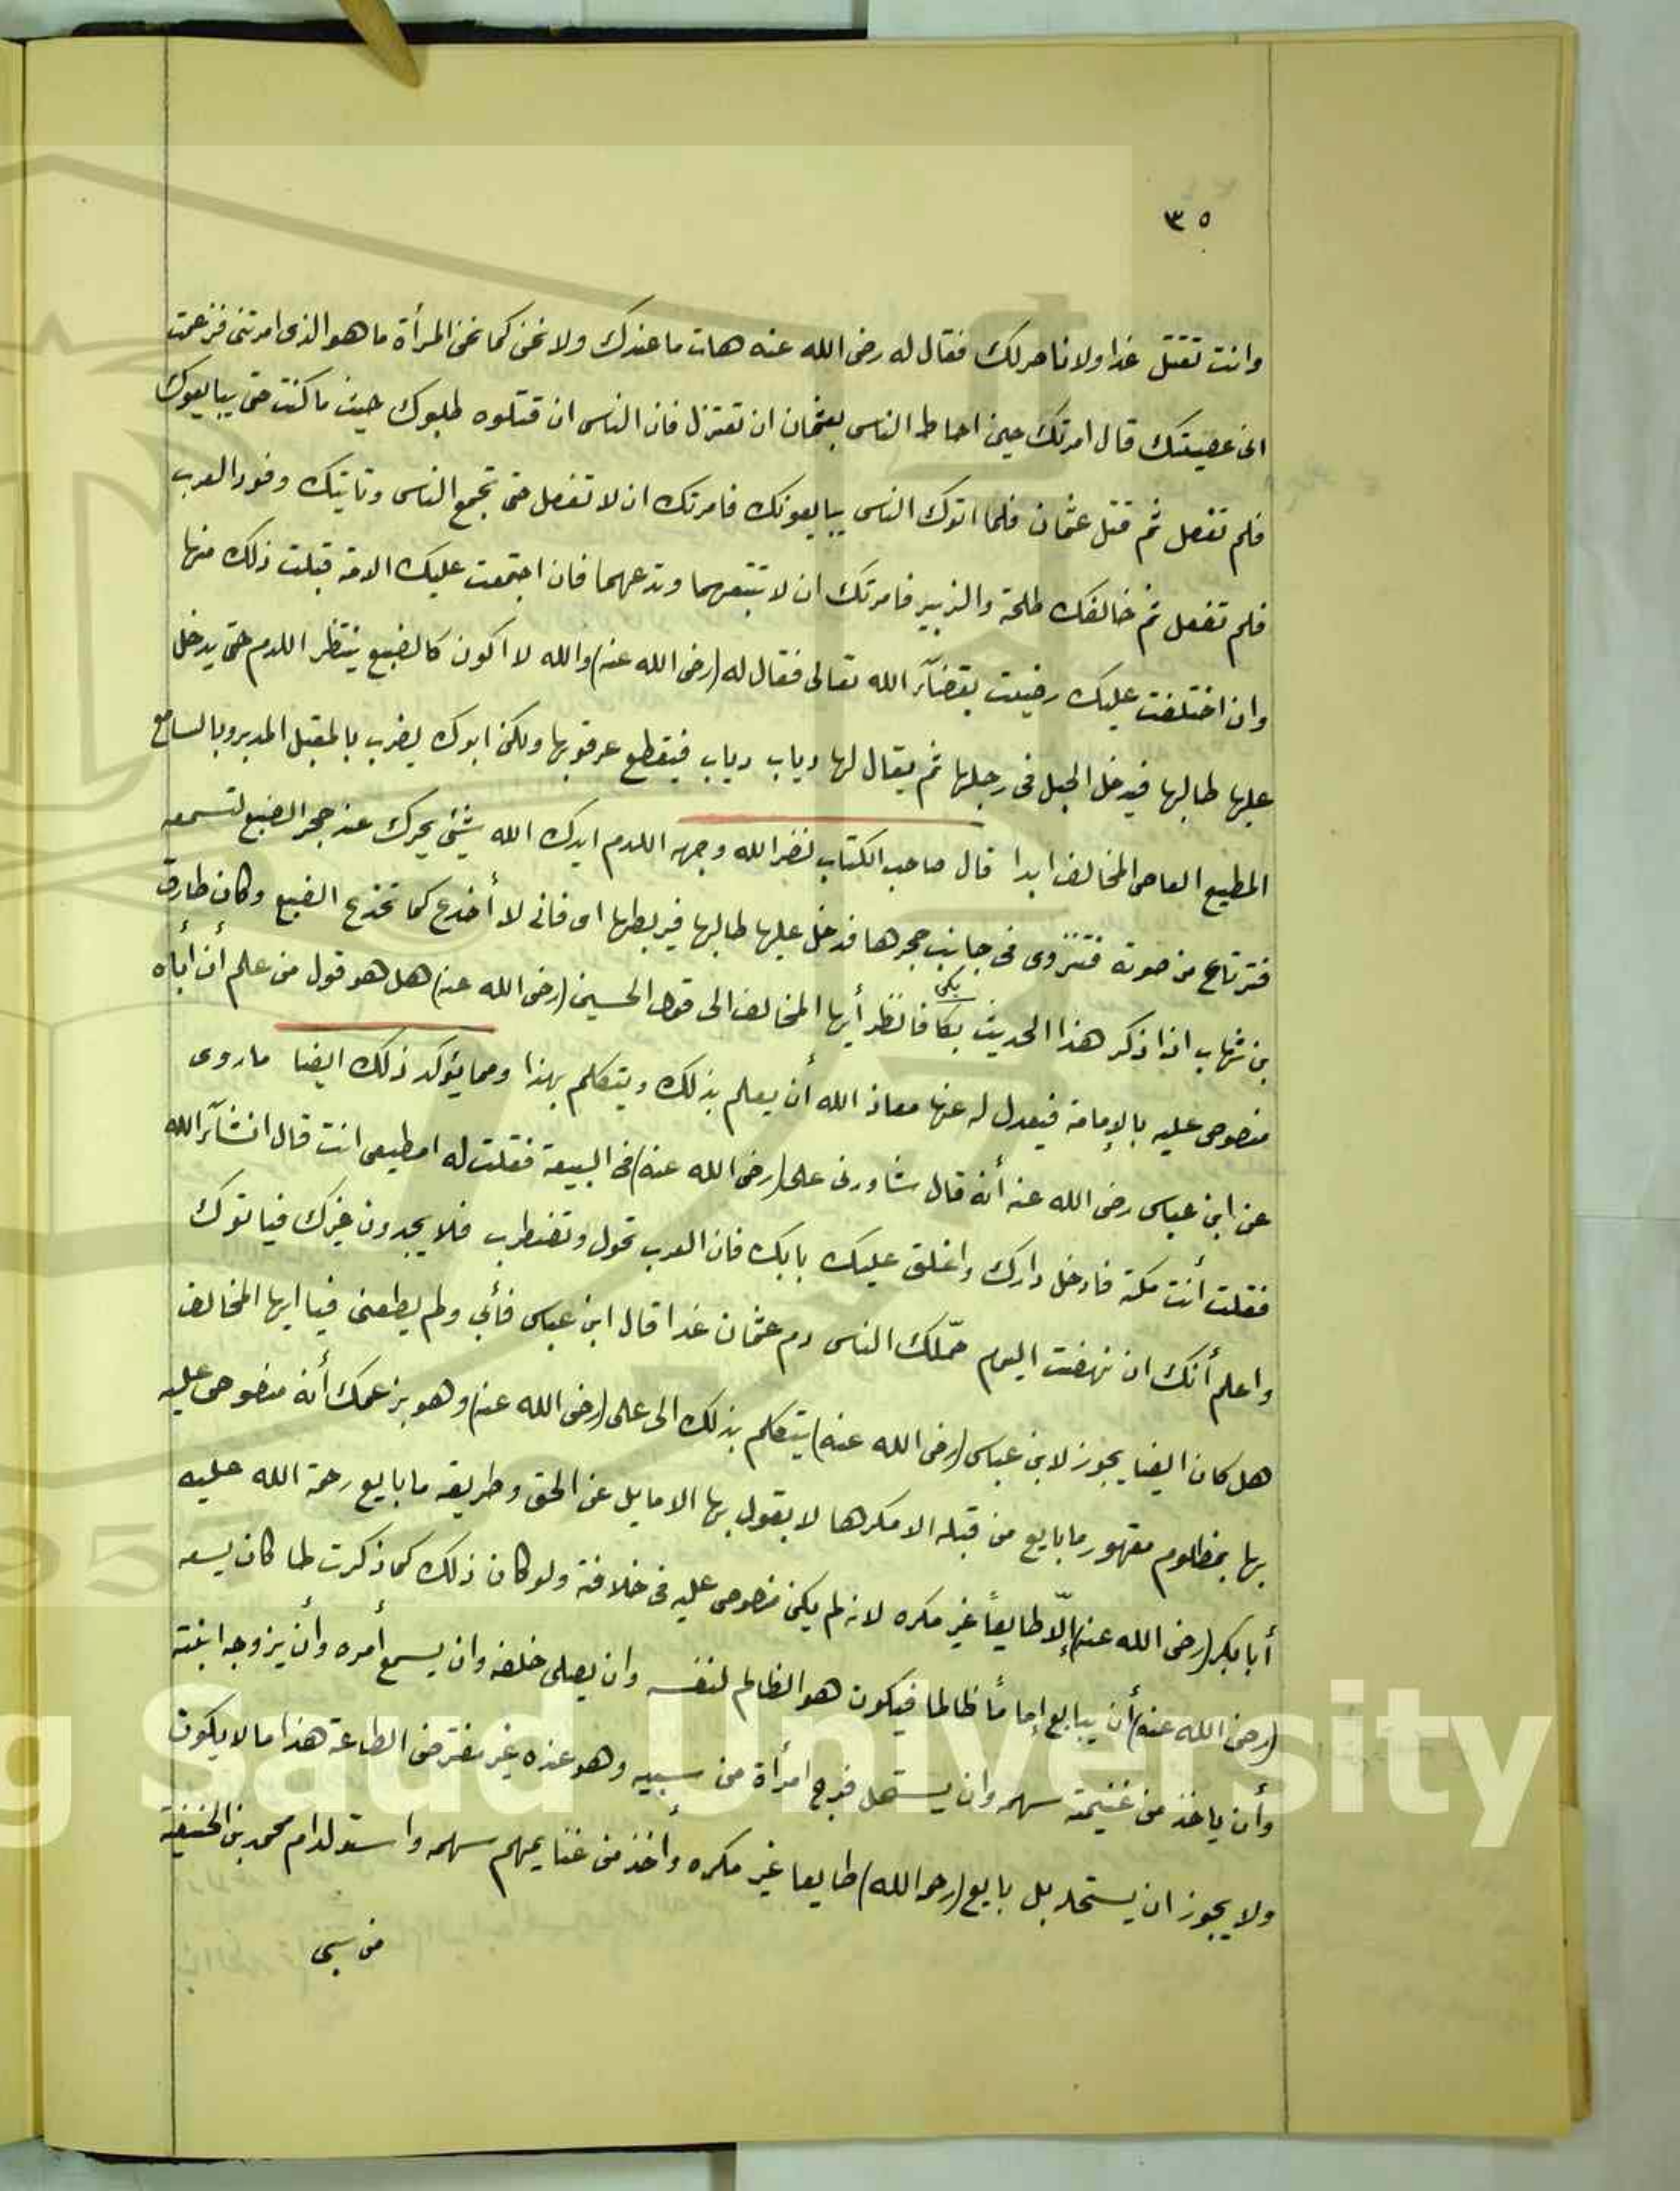 ٣٥
وانت تقتل غدا ولا ناصر لك فقال له رضى الله عنه هات ما عندك ولا تخن كما تخن المرأة ما هو الذى امرتنى فزعمت
انى عصيتك قال امرتك حين احاط الناس بعثمان ان تعتزل فان الناس ان قتلوه طلبوك حيث ما كنت حتى يبايعوك
فلم تفعل ثم قتل عثمان فلما اتوك الناس يبايعونك فامرتك ان لا تفعل حتى تجمع الناس وتاتيك وفود العرب
فلم تفعل ثم خالفك طلحة والزبير فامرتك ان لا تتبعهما وتدعهما فان اجتمعت عليك الامة قبلت ذلك منها
وان اختلفت عليك رضيت بقضآء الله تعالى فقال له (رضى الله عنه) والله لا اكون كالضبع ينتظر اللدم حتى يدخل
عليها طالبها فيدخل الحبل فى رجلها ثم يقال لها دياب دياب فيقطع عرقوبها ولكن ابوك يضرب بالمقبل المدبر وبالسامع
المطيع العاصى المخالف ابدا قال صاحب الكتاب نضر الله وجهه اللدم ايدك الله شئى يحرك عند جحر الضبع لتسمعه
فترتاع من صوته فتنزوى فى جانب جحرها فدخل عليها طالبها فيربطها اى فانى لا أخدع كما تخدع الضبع وكان طارق
بن شهاب اذا ذكر هذا الحديث بكا بكى فانظر أيها المخالف الى قول الحسين (رضى الله عنه) هل هو قول من علم أن أباه
منصوص عليه بالإمامة فيعدل له عنها معاذ الله أن يعلم بذلك ويتكلم بهذا ومما يؤكد ذلك ايضا ما روى
عن ابن عباس رضى الله عنه أنه قال شاورنى على (رضى الله عنه) فى البيعة فقلت له امطيعى انت قال انشآء الله
فقلت أنت مكة فادخل دارك واغلق عليك بابك فان العرب تحول وتضطرب فلا يجدون غيرك فياتوك
واعلم أنك ان نهضت اليوم حمّلك الناس دم عثمان غدا قال ابن عباس فأبي ولم يطعنى فيا ايها المخالف
هل كان ايضا يجوز لابن عباس (رضى الله عنه) يتكلم بذلك الى على (رضى الله عنه) وهو بزعمك أنه منصوص عليه
بها بمظلوم مقهور ما بايع من قبله الا مكرها لا يقول بها الا مايل عن الحق وطريقه ما بايع رحمة الله عليه
أبا بكر (رضى الله عنه) إلّا طايعاً غير مكره لانه لم يكن منصوص عليه فى خلافة ولو كان ذلك كما ذكرت لما كان يسعه
(رضى الله عنه) أن يبايع إماماً ظالما فيكون هو الظالم لنفسه وان يصلى خلفه وان يسمع أمره وأن يزوجه ابنته
وأن ياخذ من غنيمته سهمه وان يستحل فرج امرأة من سبيه وهو عنده غير مفترض الطاعة هذا ما لا يكون
ولا يجوز ان يستحله بل بايع (رحمه الله) طايعا غير مكره وأخذ من غنايمهم سهمه واستولد ام محمد بن الحنفية
من سبى
g Saud University
957